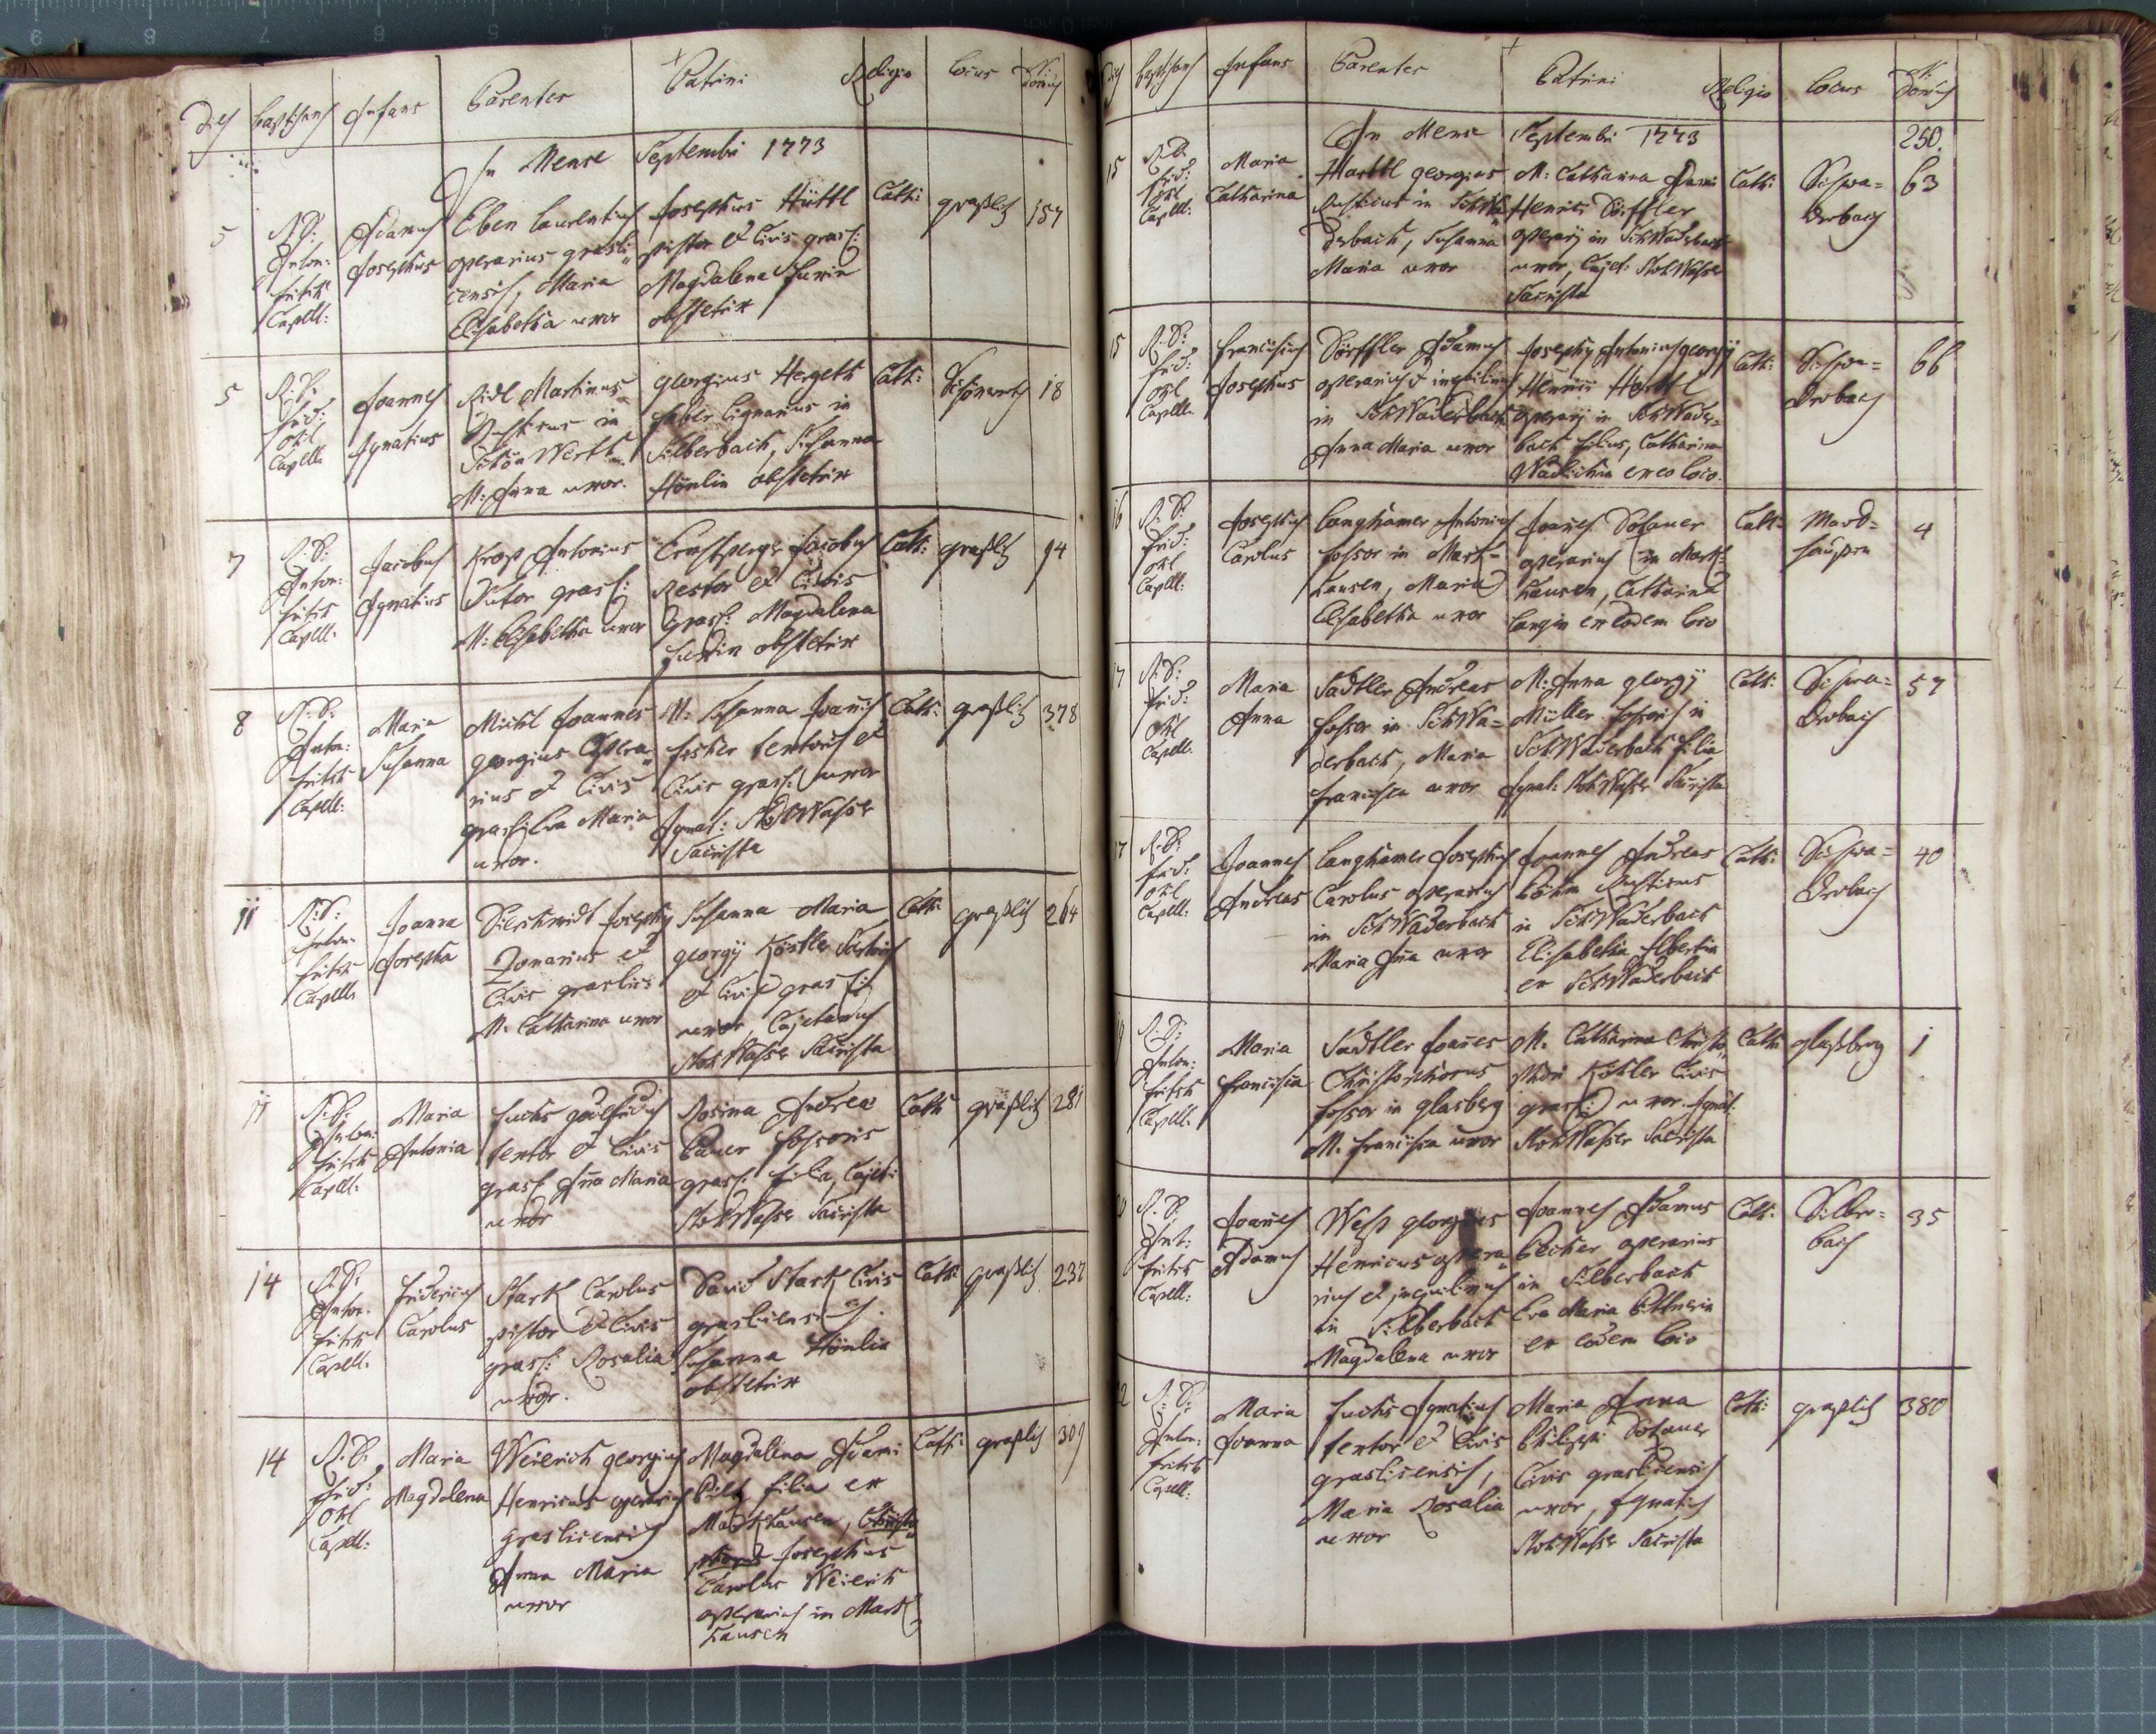 dies baptisans Infans Parentes Patrini Religio locus N: Domus
In Mense Septembri 1773
5
R: D: Anton: fritsch Capell:
Adamus Josephus
Eben laurentius
operarius grasli„
censis, Maria
Elisabetha uxor
Josephus Hüttl
pistor et Civis gras:
Magdalena
obstetrix
Cath:
graßlitz
157
5
R: D: frid: Capell:
Joannes Ignatius
Ridl Martinus
Rusticus in
Schön Werth
M: Anna uxor.
georgius Hergeth
faber lignarius in
Silberbach, Susanna
Hönlin obstetrix
Cath:
Schönwerth
18
7
R: D: Anton: fritsch Capell:
Jacobus Ignatius
Antonius
Sutor gras:
M: Elisabetha uxor
Jacobus
et Civis
Gras: Magdalena
obstetrix
Cath:
graßlitz
94
8
R: D: Anton: fritsch Capell:
Maria Susanna
Michl Joannes
georgius Opera„
rius et Civis
gras: Eva Maria
uxor.
M: Susanna Joannis
textoris et
Civis gras: uxor
Ignat: StohWasser
Sacrista
Cath:
graßlitz
378
11
R: D: Anton: fritsch Capell:
Joanna Josepha
Josephus
Zonarius et
Civis graslic:
M: Catharina uxor
Susanna Maria
georgÿ Köstler
et Civis gras:
uxor, Cajetanus
StohWasser Sacrista
Cath:
graßlitz
264
11
R: D: Anton: fritsch Capell:
Maria Antonia
fuchs godefridus
textor et Civis
gras: Anna Maria
uxor
Rosina Andreæ
Bauer fossoris
gras: filia, Cajet:
StohWasser Sacrista
Cath:
graßlitz
281
14
R: D: Anton: fritsch Capell:
fridericus Carolus
Stark Carolus
pistor et Civis
gras: Rosalia
uxor.
David Stark Civis
graslicensis.
Susanna Hönlin
obstetrix
Cath:
graßlitz
237
14
R: D: frid: Capell:
Maria Magdalena
Weierich georgius
Henricus operarius
graslicensis
Anna Maria
uxor
Magdalena Adami
filia ex
Markhausen,
Josephus
Carolus Weierich
operarius in Mark
hausen
Cath:
graßlitz
309
dies baptisans Infans Parentes Patrini Religio locus N: Domus
In Mense Septembri 1773
250.
15
R: D: frid: Capell:
Maria Catharina
Harttl georgius
Rusticus in SchWa
derbach, Susanna
Maria uxor
M: Catharina
Henrici Dörffler
operarÿ in SchWaderbach
uxor, Cajet: StohWasser
Sacrista
Cath:
Schwa=
derbach
63
15
R: D: frid: Capell:
franciscus Josephus
Dörffler Adamus
operarius et inquilinus
in SchWaderbach
Anna Maria uxor
Josephus Antonius georgÿ
Henrici Harttl
operarÿ in SchWader=
bach filius, Catharina
ex eo loco.
Cath:
Schwa=
derbach
66
16
R: D: frid: Capell:
Josephus Carolus
langhamer Antonius
fossor in Mark=
hausen, Maria
Elisabetha uxor
Joannes Dotzauer
operarius in Mark=
hausen, Catharina
langin ex eodem loco
Cath:
Mark=
haußen
4
17
R: D: frid: Capell:
Maria Anna
Sadtler Andreas
fossor in SchWa=
derbach, Maria
francisca uxor
M: Anna georgÿ
Müller fossoris in
SchWaderbach filia
Ignat: StohWasser Sacrista
Cath:
Schwa=
derbach
57
17
R: D: frid: Capell:
Joannes Andreas
langhamer Josephus
Carolus operarius
in SchWaderbach
Maria Anna uxor
Joannes Andreas
Böhm Rusticus
in SchWaderbach
Elisabetha Albertin
ex SchWaderbach
Cath:
Schwa=
derbach
40
R: D: Anton: fritsch Capell:
Maria francisca
Sadtler Joannes
Christophorus
fossor in glasberg
M: francisca uxor
M: Catharina Christo„
phori Köhler Civis
gras: uxor. Ignat:
StohWasser Sacrista
Cath:
glaßberg
1
R: D: Ant: fritsch Capell:
Joannes Adamus
georgius
Henricus opera„
rius et inquilinus
in Silberbach
Magdalena uxor
Joannes Adamus
operarius
in Silberbach
Eva Maria
ex eodem loco
Cath:
Silber=
bach
35
R: D: Anton: fritsch Capell:
Maria Joanna
fuchs Ignatius
textor et Civis
graslicensis,
Maria Rosalia
uxor
Maria Anna
Philippi Dotzauer
Civis graslicensis
uxor, Ignatius
StohWasser Sacrista
Cath:
graßlitz
380